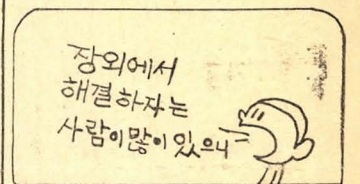 장외에서
해결하자는
사람이 많이 있으니